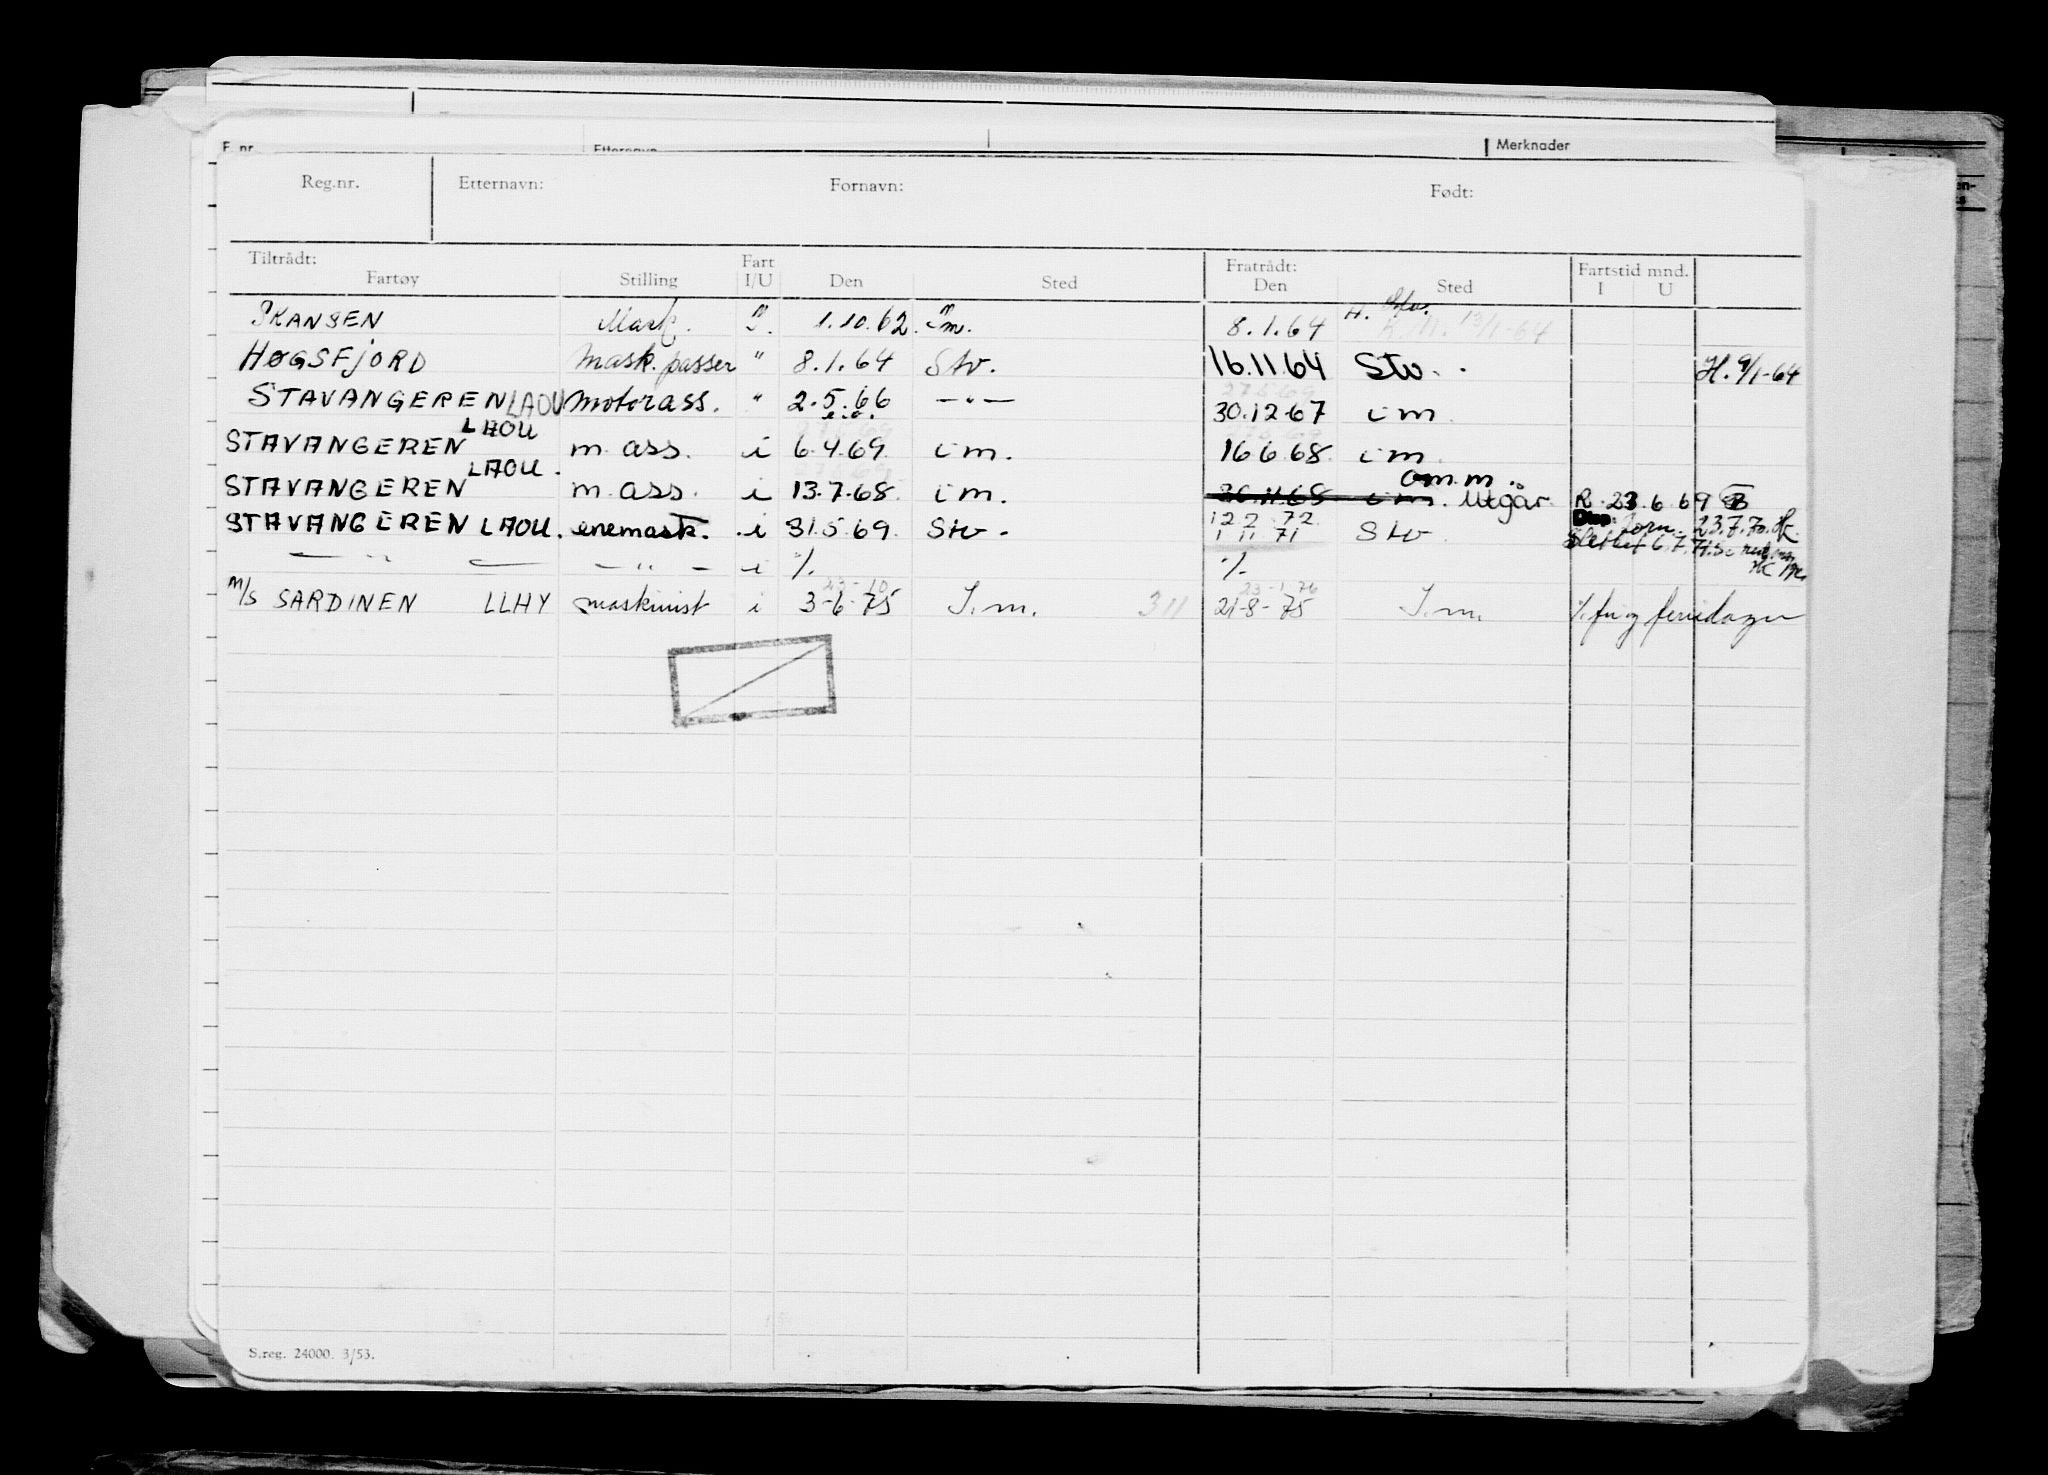 F. nr. Etternavn Merknader
Reg.nr. Etternavn: Fornavn: Født:
Tiltrådt: Fart Fratrådt: Fartstid mnd.
Fartøy Stilling I/U Den Sted Den Sted I U
SKANSEN Mask. I. 1.10.62. Im. 8.1.64 H. Stv. K.M. 13/1-64
HØGSFJORD Mask.passer " 8.1.64 Stv. 16.11.64 Stv. H. 9/1-64
STAVANGEREN LAOU motorass. " 2.5.66 — " — 30.12.67 i m
STAVANGEREN LAOU m.ass. i 6.4.69. i m. 16.6.68. i m
STAVANGEREN LAOU. m.ass. i 13.7.68. i m. 26.11.68 i m. omm. Utgår. R. 23.6.69
STAVANGEREN LAOU. enemask. i 31.5.69. Stv. 12 2 72 Disp. 23.7.70.
1 11 71 Stv. Slettet 6.7.71.
— " — — " — i %. %
M/S SARDINEN LLHY maskinist i 3-6-75 I.m. 311 21-8-75 23-1-76 I.m. %. feriedager
S.reg. 24000. 3/53.